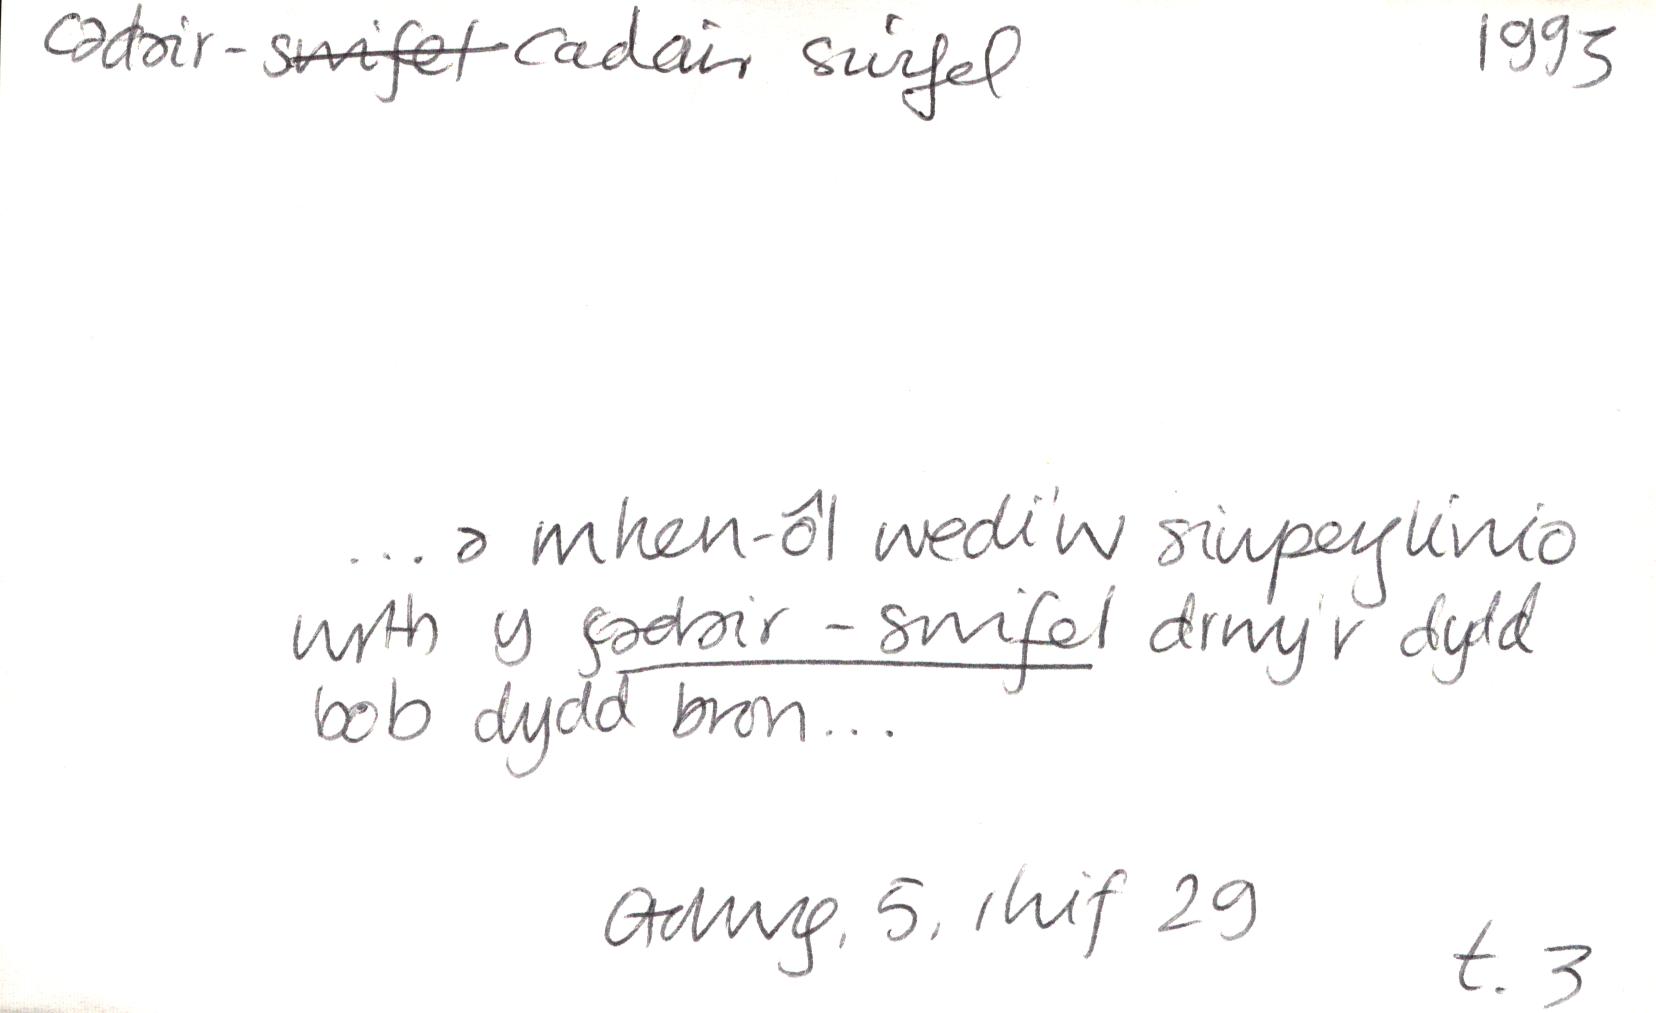 cadair-swifel cadair swifel 1995
... a mhen-ôl wedi'w siwpeyglinio
wrth y gadair-swifel drwy'r dydd
bob dydd bron...
Golwg, 5, rhif 29
t. 3